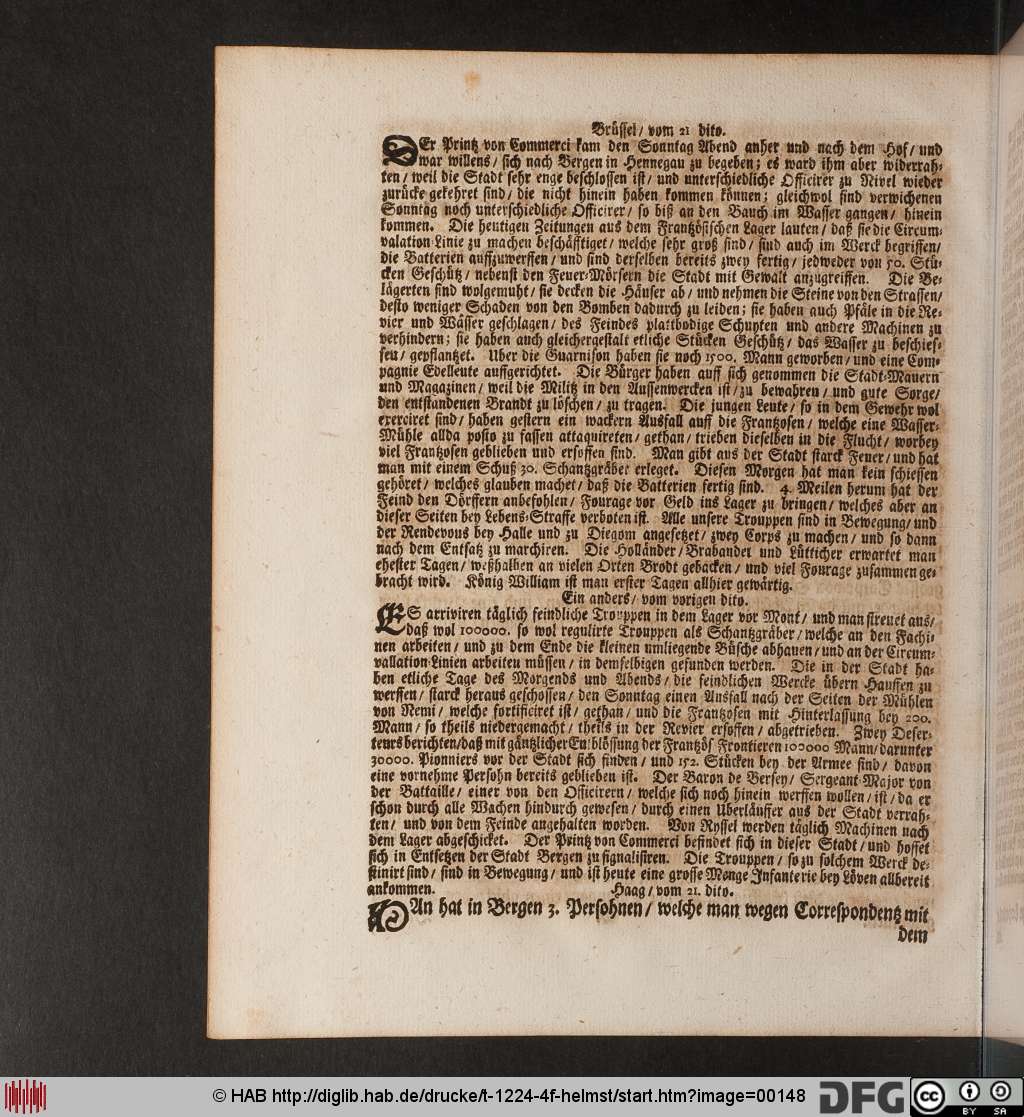 Brüssel/ vom 21 dito.
DEr Printz von Commerci kam den Sonntag Abend anher und nach dem Hof/ und
war willens/ sich nach Bergen in Hennegau zu begeben; es ward ihm aber widerrah-
ten/ weil die Stadt sehr enge beschlossen ist/ und unterschiedliche Officirer zu Nivel wieder
zurücke gekehret sind/ die nicht hinein haben kommen können; gleichwol sind verwichenen
Sonntag noch unterschiedliche Officirer/ so biß an den Bauch im Wasser gangen/ hinein
kommen. Die heutigen Zeitungen aus dem Frantzösischen Lager lauten/ daß sie die Circum-
valation-Linie zu machen beschäfftiget/ welche sehr groß sind/ sind auch im Werck begriffen/
die Batterien auffzuwerffen/ und sind derselben bereits zwey fertig/ jedweder von 50. Stü-
cken Geschütz/ nebenst den Feuer-Mörsern die Stadt mit Gewalt anzugreiffen. Die Be-
lägerten sind wolgemuht/ sie decken die Häuser ab/ und nehmen die Steine von den Strassen/
desto weniger Schaden von den Bomben dadurch zu leiden; sie haben auch Pfäle in die Re-
vier und Wässer geschlagen/ des Feindes plattbodige Schuyten und andere Machinen zu
verhindern; sie haben auch gleichergestalt etliche Stücken Geschütz/ das Wasser zu beschies-
sen/ gepflantzet. Uber die Guarnison haben sie noch 1500. Mann geworben/ und eine Com-
pagnie Edelleute auffgerichtet. Die Bürger haben auff sich genommen die Stadt-Mauern
und Magazinen/ weil die Militz in den Aussenwercken ist/ zu bewahren/ und gute Sorge/
den entstandenen Brandt zu löschen/ zu tragen. Die jungen Leute/ so in dem Gewehr wol
exerciret sind/ haben gestern ein wackern Ausfall auff die Frantzosen/ welche eine Wasser-
Mühle allda posto zu fassen attaquireten/ gethan/ trieben dieselben in die Flucht/ worbey
viel Frantzosen geblieben und ersoffen sind. Man gibt aus der Stadt starck Feuer/ und hat
man mit einem Schuß 30. Schantzgräber erleget. Diesen Morgen hat man kein schiessen
gehöret/ welches glauben machet/ daß die Batterien fertig sind. 4. Meilen herum hat der
Feind den Dörffern anbefohlen/ Fourage vor Geld ins Lager zu bringen/ welches aber an
dieser Seiten bey Lebens-Straffe verboten ist. Alle unsere Trouppen sind in Bewegung/ und
der Rendevous bey Halle und zu Diegom angesetzet/ zwey Corps zu machen/ und so dann
nach dem Entsatz zu marchiren. Die Holländer/ Brabander und Lütticher erwartet man
ehester Tagen/ weßhalben an vielen Orten Brodt gebacken/ und viel Fourage zusammen ge-
bracht wird. König William ist man erster Tagen allhier gewärtig.
Ein anders/ vom vorigen dito.
ES arriviren täglich feindliche Trouppen in dem Lager vor Mont/ und man streuet aus/
daß wol 100000. so wol regulirte Trouppen als Schantzgräber/ welche an den Fachi-
nen arbeiten/ und zu dem Ende die kleinen umliegende Büsche abhauen/ und an der Circum-
vallation-Linien arbeiten müssen/ in demselbigen gefunden werden. Die in der Stadt ha-
ben etliche Tage des Morgends und Abends/ die feindlichen Wercke übern Hauffen zu
werffen/ starck heraus geschossen/ den Sonntag einen Ausfall nach der Seiten der Mühlen
von Nemi/ welche fortificiret ist/ gethan/ und die Frantzosen mit Hinterlassung bey 200.
Mann/ so theils niedergemacht/ theils in der Revier ersoffen/ abgetrieben. Zwey Deser-
teurs berichten/ daß mit gäntzlicher Entblössung der Frantzös. Frontieren 100000 Mann/ darunter
30000. Pionniers vor der Stadt sich finden/ und 152. Stücken bey der Armee sind/ davon
eine vornehme Persohn bereits geblieben ist. Der Baron de Bersey/ Sergeant-Major von
der Battaille/ einer von den Officirern/ welche sich noch hinein werffen wollen/ ist/ da er
schon durch alle Wachen hindurch gewesen/ durch einen Uberläuffer aus der Stadt verrah-
ten/ und von dem Feinde angehalten worden. Von Ryssel werden täglich Machinen nach
dem Lager abgeschicket. Der Printz von Commerci befindet sich in dieser Stadt/ und hoffet
sich in Entsetzen der Stadt Bergen zu signalisiren. Die Trouppen/ so zu solchem Werck de-
stinirt sind/ sind in Bewegung/ und ist heute eine grosse Menge Infanterie bey Löven allbereit
ankommen.
Haag/ vom 21. dito.
MAn hat in Bergen 3. Persohnen/ welche man wegen Correspondentz mit
dem
© HAB http://diglib.hab.de/drucke/t-1224-4f-helmst/start.htm?image=00148
DFG
cc
BY SA